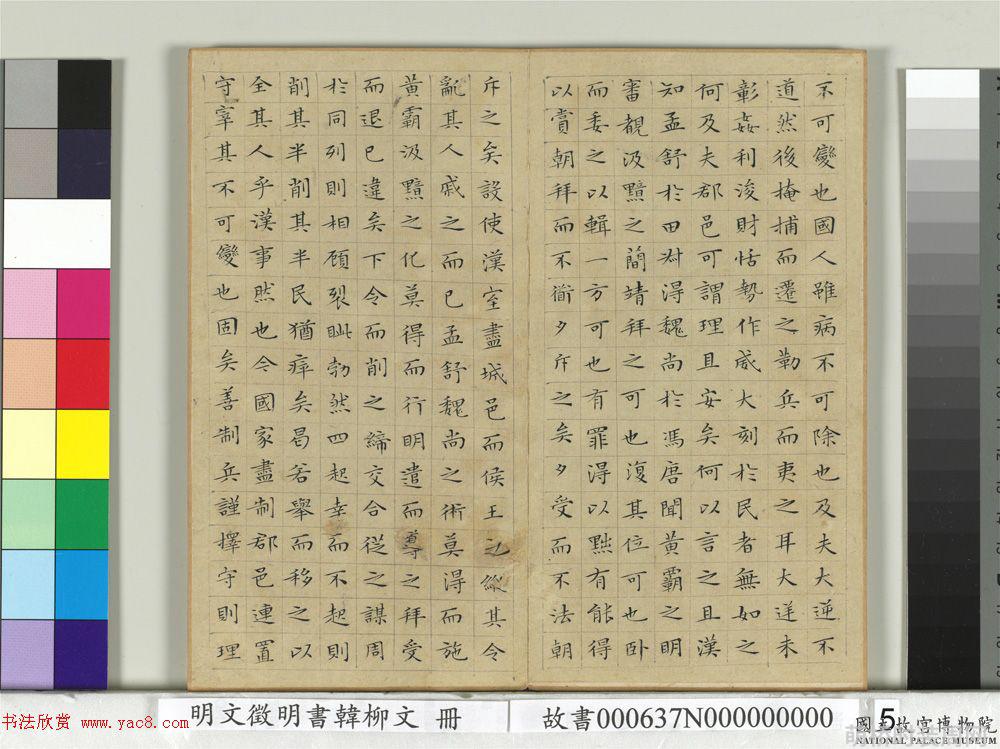 不可變也國人雖病不可除也及夫大逆不
道然後掩捕而遷之勒兵而夷之耳大逆未
彰姦利浚財怙勢作威大刻於民者無如之
何及夫郡邑可謂理且安矣何以言之且漢
知孟舒於田叔得魏尚於馮唐聞黃霸之明
審覩汲黯之簡靖拜之可也復其位可也臥
而委之以輯一方可也有罪得以黜有能得
以賞朝拜而不衜夕斥之矣夕受而不法朝
斥之矣設使漢室盡城邑而侯王之縱其令
亂其人戚之而已孟舒魏尚之術莫得而施
黃霸汲黯之化莫得而行明遣而導之拜受
而退已違矣下令而削之締交合從之謀周
於同列則相顧裂眦勃然四起幸而不起則
削其半削其半民猶瘁矣曷若舉而移之以
全其人乎漢事然也今國家盡制郡邑連置
守宰其不可變也固矣善制兵謹擇守則理
书法欣赏 www.yac8.com
明文徵明書韓柳文 冊
故書000637N000000000
5
國立故宮博物院
NATIONAL PALACE MUSEUM